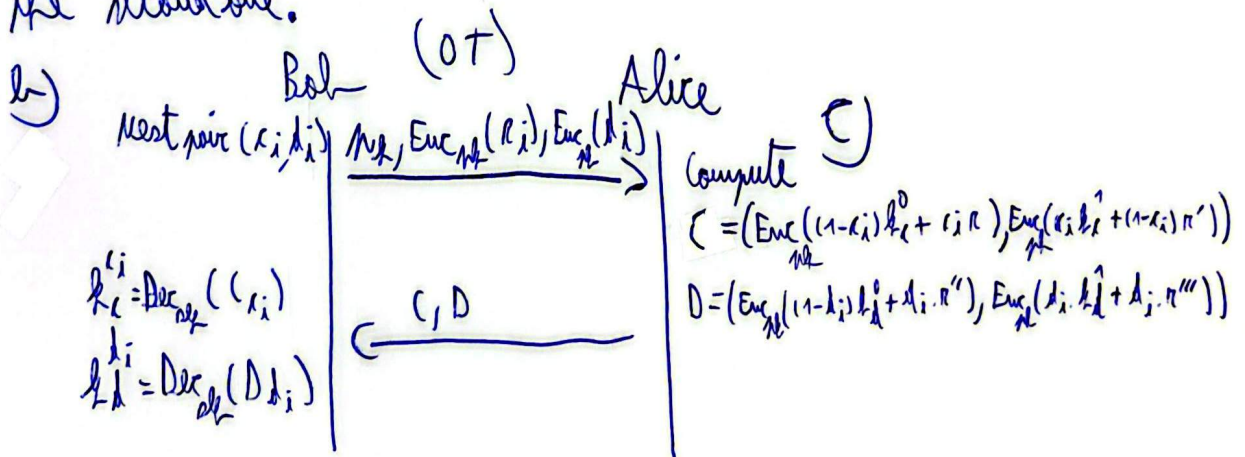 the second one.
b) Bob (OT) Alice
next pair (c_i, d_i) pk, Enc_pk(c_i), Enc_pk(d_i) c)
Compute
C = (Enc_pk((1-c_i)k_c^0 + c_i r), Enc_pk(c_i k_c^1 + (1-c_i) r'))
D = (Enc_pk((1-d_i)k_d^0 + d_i . r''), Enc_pk(d_i . k_d^1 + d_i . r'''))
k_c^{c_i} = Dec_sk(C_{c_i}) C, D
k_d^{d_i} = Dec_sk(D_{d_i})